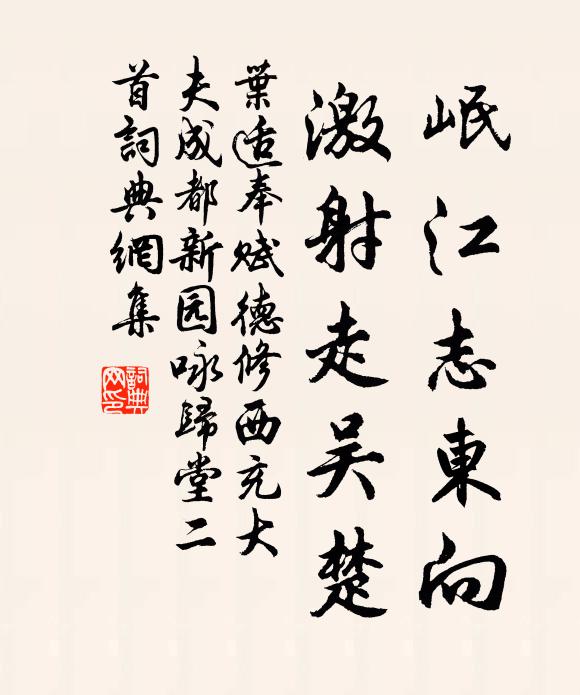 岷江志東向
激射走吴楚
葉适奉赋德修西充大
夫成都新园咏歸堂二
首詞典網集
詞典網印